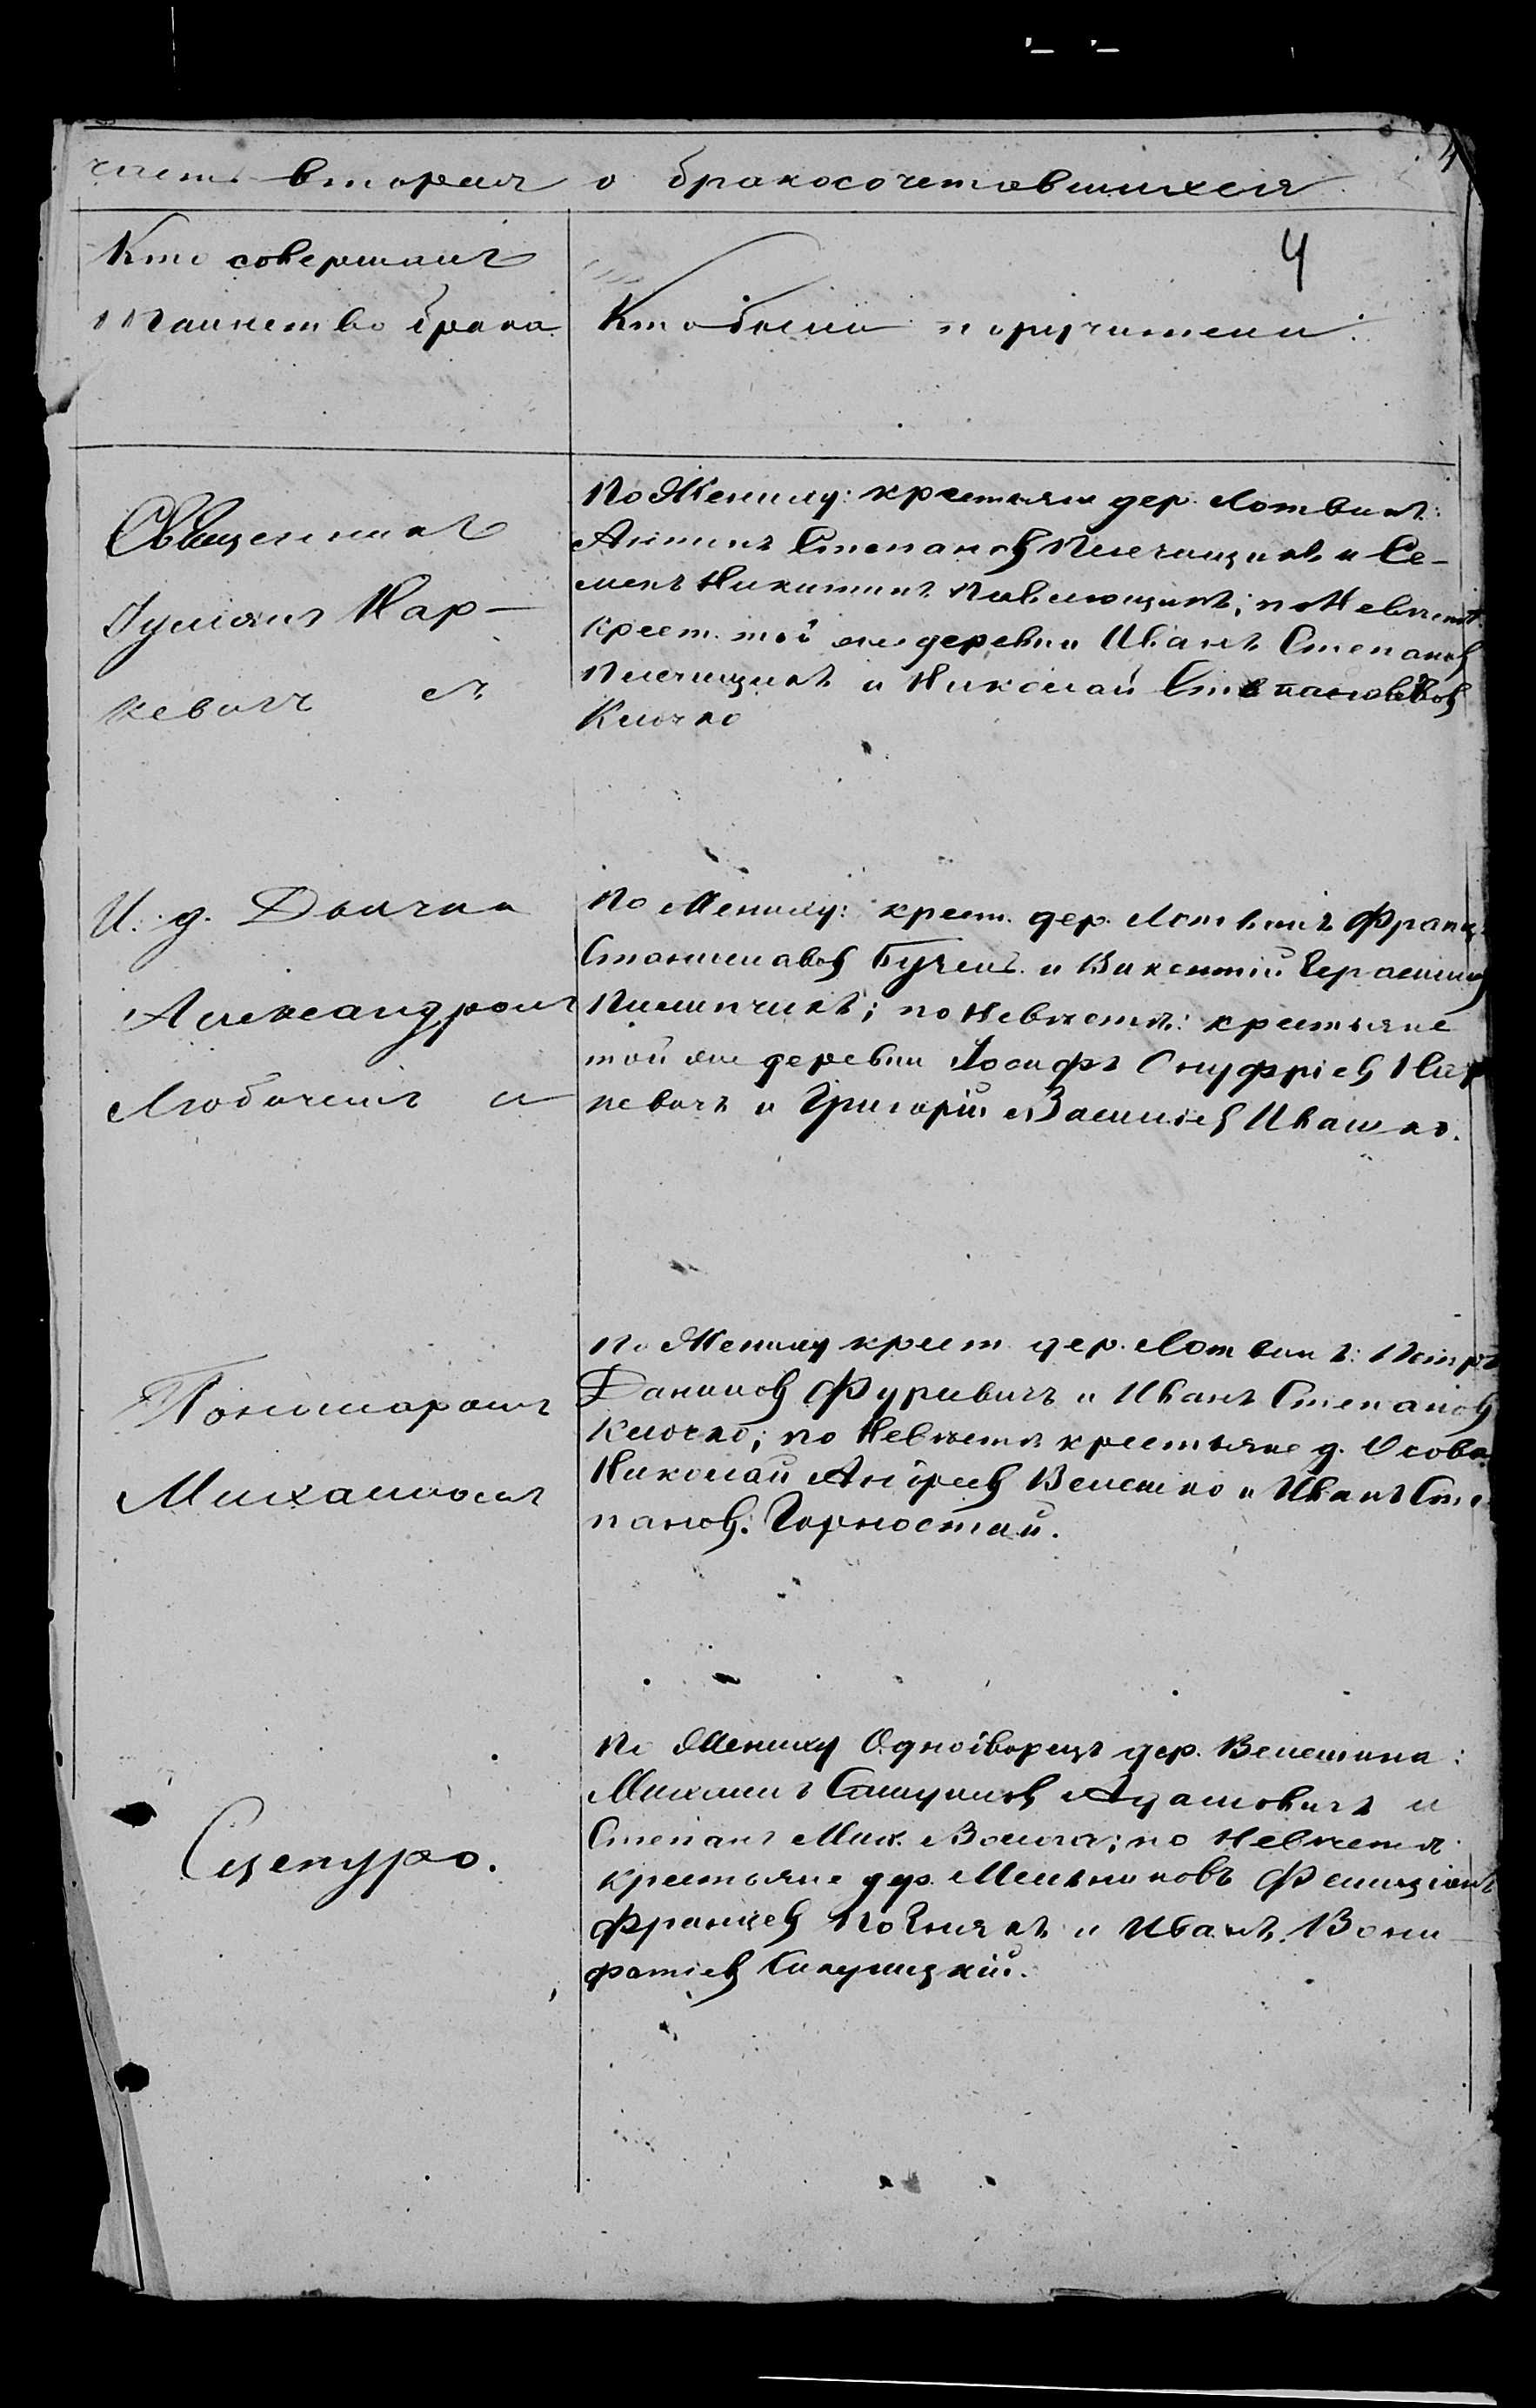 часть вторая о бракосочетавшихся
4
4
Кто совершалъ
таинство брака
Кто были поручители.
Священникъ
Іуліанъ Нар-
кевичъ съ
По Жениху: крестьяне дер. Лотвинъ:
Антонъ Степановъ и Се-
менъ Никитинъ; по Невѣстѣ
крест. той же деревни Иванъ Степановъ
и Николай
Клочко
И. д. Дьячка
Александромъ
Любичемъ и
По Жениху: крест. дер. Лотвинъ Францъ
Станиславовъ и Викентій Герасимовъ
Пилипчикъ; по Невѣстѣ: крестьяне
той же деревни Іосифъ Онуфріевъ Нар
кевичъ и Григорій Васильевъ Ивашко.
Пономаремъ
Михаиломъ
По Жениху крест. дер. Лотвинъ: Петръ
Даниловъ Фурсевичъ и Иванъ Степановъ
Клочко; по Невѣстѣ крестьяне д. Осова
Николай Андреевъ Велешко и Иванъ Сте
пановъ. Горностай.
Сцепуро.
По Жениху Однодворецъ дер. Велешина:
Михаилъ Самуиловъ Адамовичъ и
Степанъ Мих. Волога; по Невѣстѣ
крестьяне дер. Мельниковъ Фелиціанъ
Францевъ и Иванъ Вони
фатіевъ